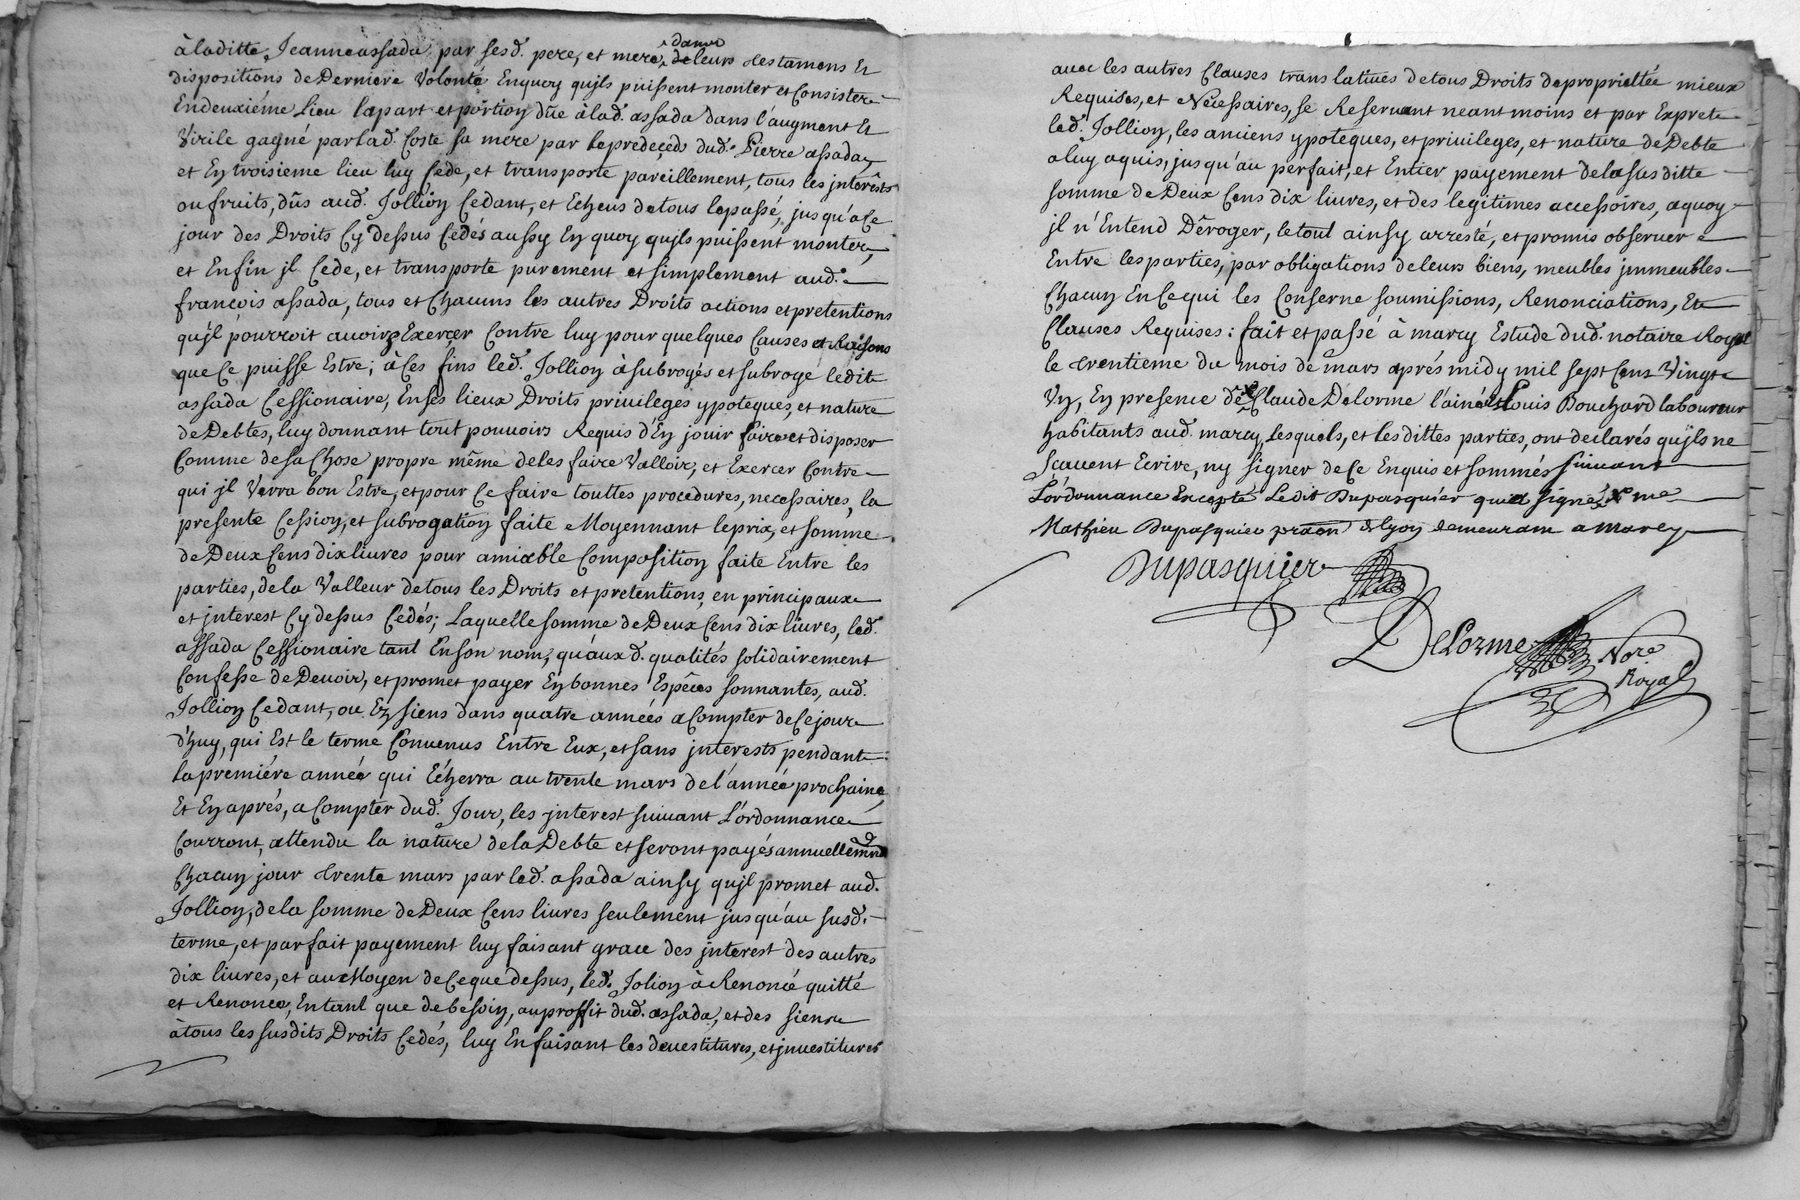 à laditte Jeanne assada par sesd. pere, et mere dans
de leurs testamens Et
dispositions de Derniere Volonté Enquoy quils puissent monter et Consister
Endeuxiéme Lieu lapart et portion dûe àlad. assada dans l'augment Et
Virile gagné par lad. Coste sa mere par le predecedz dud. Pierre assada,
et En troisieme lieu luy Cede, et transporte pareillement, tous les interêts
ou fruits, dûs aud. Jollion Cedant, et Echeus de tous le passé, jusqu'a Ce
jour des Droits Cy dessus Cedés aussy En quoy quils puissent monter,
et Enfin jl Cede, et transporte purement et simplement aud.
françois assada, tous et Chacuns les autres Droits actions et pretentions
qu'jl pourroit avoir, Exercer Contre luy pour quelques Causes et Raisons
que Ce puisse Estre; à Ces fins led. Jollion à subrogés et subroge ledit
assada Cessionaire, En ses lieux Droits privileges ypoteques, et nature
de Debtes, luy donnant tout pouvoirs Requis d'En jouir faire et disposer
Comme de sa Chose propre même de les faire Valloir, et Exercer Contre
qui jl Verra bon Estre, et pour Ce faire touttes procedures, necessaires, la
presente Cession, et subrogation faite Moyennant le prix, et somme
de Deux Cens dix livres pour amiable Composition faite Entre les
parties, de la Valleur de tous les Droits et pretentions, en principaux
et jnterest Cy dessus Cedés; Laquelle somme de Deux Cens dix livres, led.
assada Cessionaire tant En son nom, qu'aux d. qualités solidairement
Confesse de Devoir, et promet payer En bonnes Espêces sonnantes, aud.
Jollion Cedant, ou Ez siens dans quatre années a Compter de Ce jour
d'huy, qui Est le terme Convenus Entre Eux, et sans jnterests pendant
la premiére année qui Echerra au trente mars de l'année prochaine,
Et En aprés, a Compter dud. Jour, les jnterest suivant L'ordonnance
Courront, attendu la nature de la Debte et seront payés annuellemnt
Chacun jour trente mars par led. assada ainsy qu'jl promet aud.
Jollion, de la somme de Deux Cens livres seulement jusqu'au susd.
terme, et parfait payement luy faisant grace des jnterest des autres
dix livres, et aux Moyen de Ce que dessus, led. Jolion à Renoncé quitté
et Renonce, En tant que de besoin, au proffit dud. assada, et des siens
à tous les susdits Droits Cedés, luy En faisant les devestitures, et jnvestitures
avec les autres Clauses translatives de tous Droits de proprietée mieux
Requises, et Nécessaires, se Reservant neantmoins et par Exprets
led. Jollion, les anciens ypoteques, et privileges, et nature de Debte
a luy aquis, jusqu'au perfait, et Entier payement de la susditte
somme de Deux Cens dix livres, et des legitimes accessoires, a quoy
jl n'Entend Dêroger, le tout ainsy arresté, et promis observer
Entre les parties, par obligations de leurs biens, meubles jmmeubles
Chacun En Ce qui les Conserne soumissions, Renonciations, Et
Clauses Requises: fait et passé à marcy Estude dud. notaire Royal
le trentieme du mois de mars aprés midy mil sept Cens Vingt
Un, En presence de Claude Delorme l'ainé et Louis Bouchard laboureur
habitants aud. marcy, Lesquels, et lesdittes parties, ont declarés qu'jls ne
sçavent Ecrire, ny signer de Ce Enquis et sommés suivant
L'ordonnance Excepté Ledit Dupasquier qui a signé X me
Mathieu Dupasquier praon de lyon demeurant a Marcy
Dupasquier
Delorme
Nore
Royal